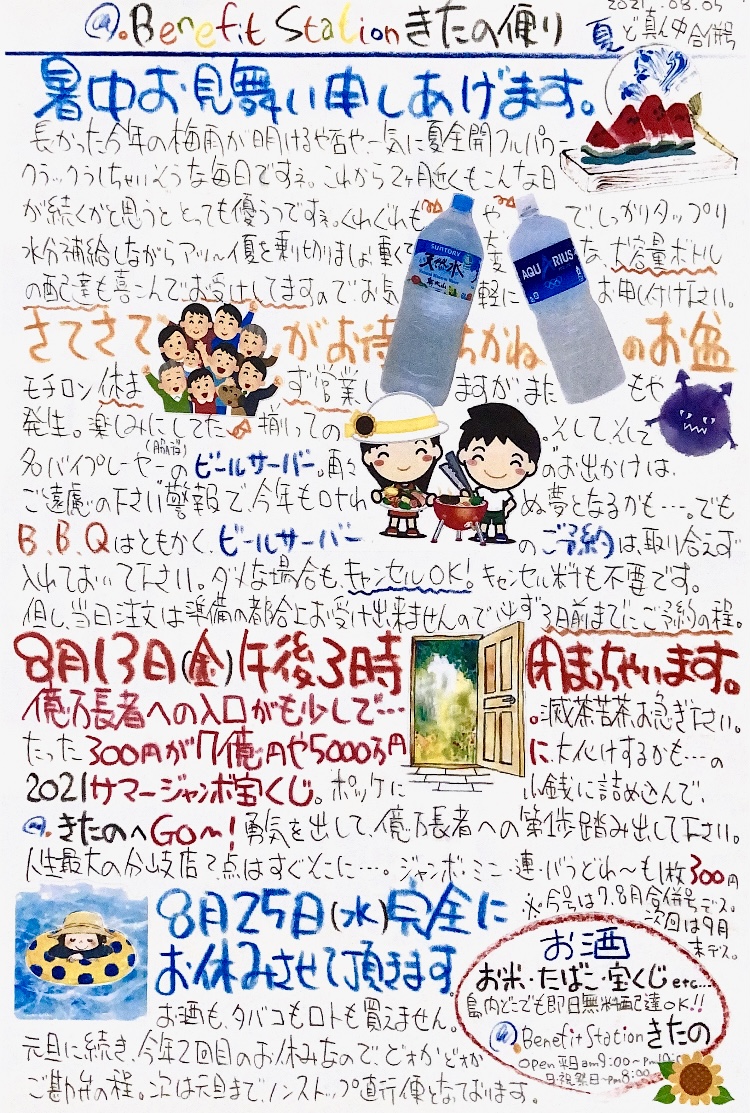 @. Benefit Station きたの便り
2021.08.05
夏ど真ん中合併号
暑中お見舞い申しあげます。
長かった今年の梅雨が明けるや否や、一気に夏全開フルパワー
クラックラしちゃいそうな毎日ですネ。これから2ヶ月近くもこんな日
が続くかと思うと とっても憂うつですネ。くれぐれも や で、しっかりタップリ
水分補給しながら アツ〜イ夏を乗り切りましょ! 重くて 大変 な、大容量ボトル
の配達も喜こんでお受けしてますので お気 軽に お申し付け下さい。
SUNTORY
天然水
AQUARIUS
さてさて がお待 ちかね のお盆
モチロン 休ま ず営業し ますが、また もや
発生。楽しみにしてた 揃っての 。そして、そして
名バイプレーヤー(脇役)の ビールサーバー。再々 のお出かけは、
ご遠慮の下さい警報で、今年も叶わ ぬ夢となるかも…。でも
B.B.Qはともかく、ビールサーバー のご予約は、取り合えず
入れておいて下さい。ダメな場合も、キャンセルOK! キャンセル料も不要です。
但し、当日注文は準備の都合上お受け出来ませんので必ず3日前までにご予約の程。
8月13日(金)午後3時 閉まっちゃいます。
億万長者への入口がも少しで… 。滅茶苦茶お急ぎ下さい。
たった300円が7億円や5000万円 に、大化けするかも…の
2021サマージャンボ宝くじ。ポッケに 小銭に詰め込んで、
@.きたのへGo〜! 勇気を出して、億万長者への第1歩踏み出して下さい。
人生最大の分岐店?点はすぐそこに…。ジャンボ・ミニ・連・バラどれ〜も1枚300円
※今号は7.8月合併号デス。
次回は9月
末デス。
8月25日(水)完全に
お休みさせて頂きます。
お酒も、タバコもロトも買えません。
元旦に続き、今年2回目のお休みなので、どぉかどぉか
ご勘弁の程。次は元旦まで、ノンストップ直行便となっております。
お酒
お米・たばこ・宝くじetc…
島内どこでも即日無料配達OK!!
@.Benefit Station きたの
open 平日am9:00〜pm
日・祝祭日〜pm8:00